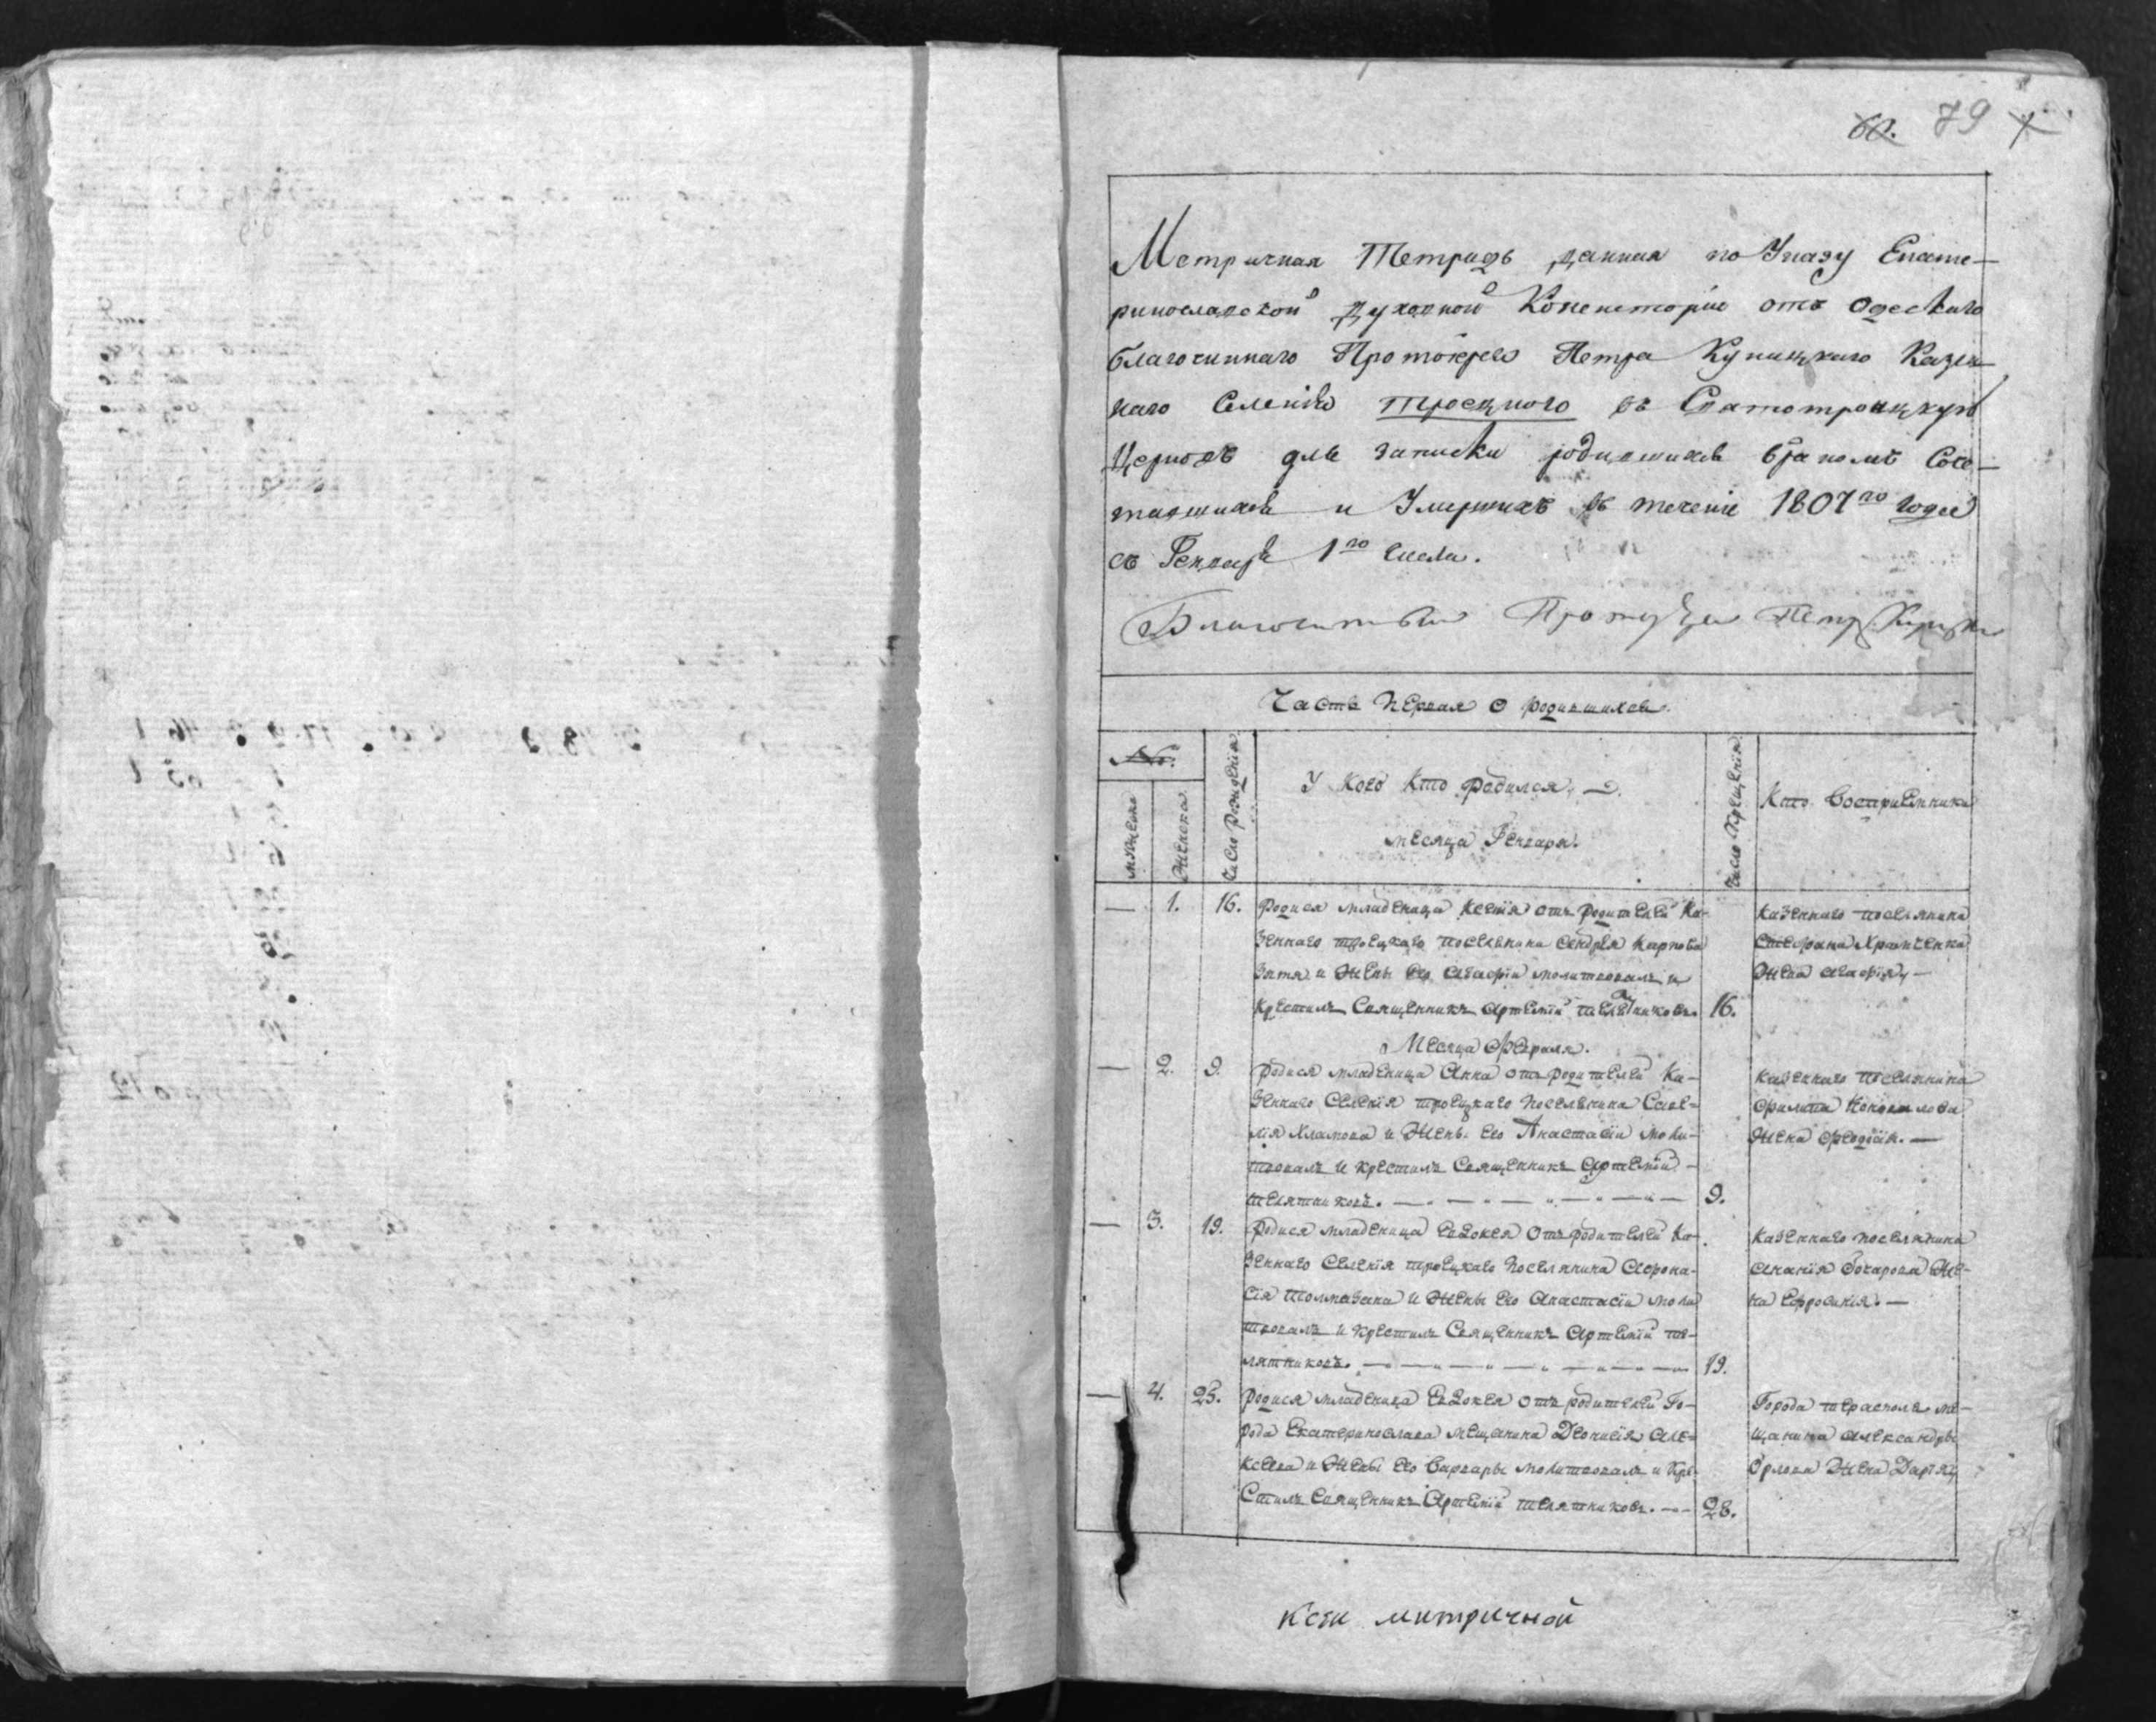 60. 79
Метричная Тетрадь данная по Указу Екате-
ринославской Духовной Консисторіи отъ Одескаго
благочиннаго Протоіерея Петра Куницкаго Казен
наго Селенія Троецкого въ Святотроицкую
Церковь для записки родившихся бракомъ Соче-
тавшихся и Умершихъ въ теченіе 1807го года
съ Генваря 1го числа.
Благочинный Протоіерей Петръ Куницкій
Часть первая о родившихся.
№.
мужеска
Женска
Число рожденія
У кого кто родился.
месяца Генваря.
Число Крещенія
Кто Восприемники
— 1. 16. родися младеница Ксенія отъ родителей Ка-
зеннаго троецкаго поселянина Андрея Карпова
зятя и Жены его Агафіи молитвовалъ и
Крестилъ Священникъ Артемій телятниковъ. 16.
Казеннаго поселянина
Стефана Храмченка
Жена Агафія,—
Месяца Февраля.
— 2. 9. родися младеница Анна отъ родителей Ка-
зеннаго Селенія троецкаго поселянина Саве-
лія Хламова и Жены его Анастасіи моли-
твовалъ и крестилъ Священникъ Артемій -
телятниковъ. 9.
Казеннаго поселянина
Филипа
Жена Феодосія.—
— 3. 19. родися младеница Евдокея отъ родителей Ка-
зеннаго Селенія троецкаго поселянина Афона-
сія Толмазана и Жены его Анастасіи моли
твовалъ и крестилъ Священникъ Артемій те-
лятниковъ. 19.
Казеннаго поселянина
Ананія Бочарова Же-
на Ефросинія.—
— 4. 25. родися младеница Евдокея отъ родителей Го-
рода Екатеринослава мещанина Деонисія Але-
ксеева и Жены его Варвары молитвовалъ и Кре-
стилъ Священникъ Артемій телятниковъ. 28.
Города терасполя ме-
щанина Александры
Орлова Жена Дарія
Ксей митричной